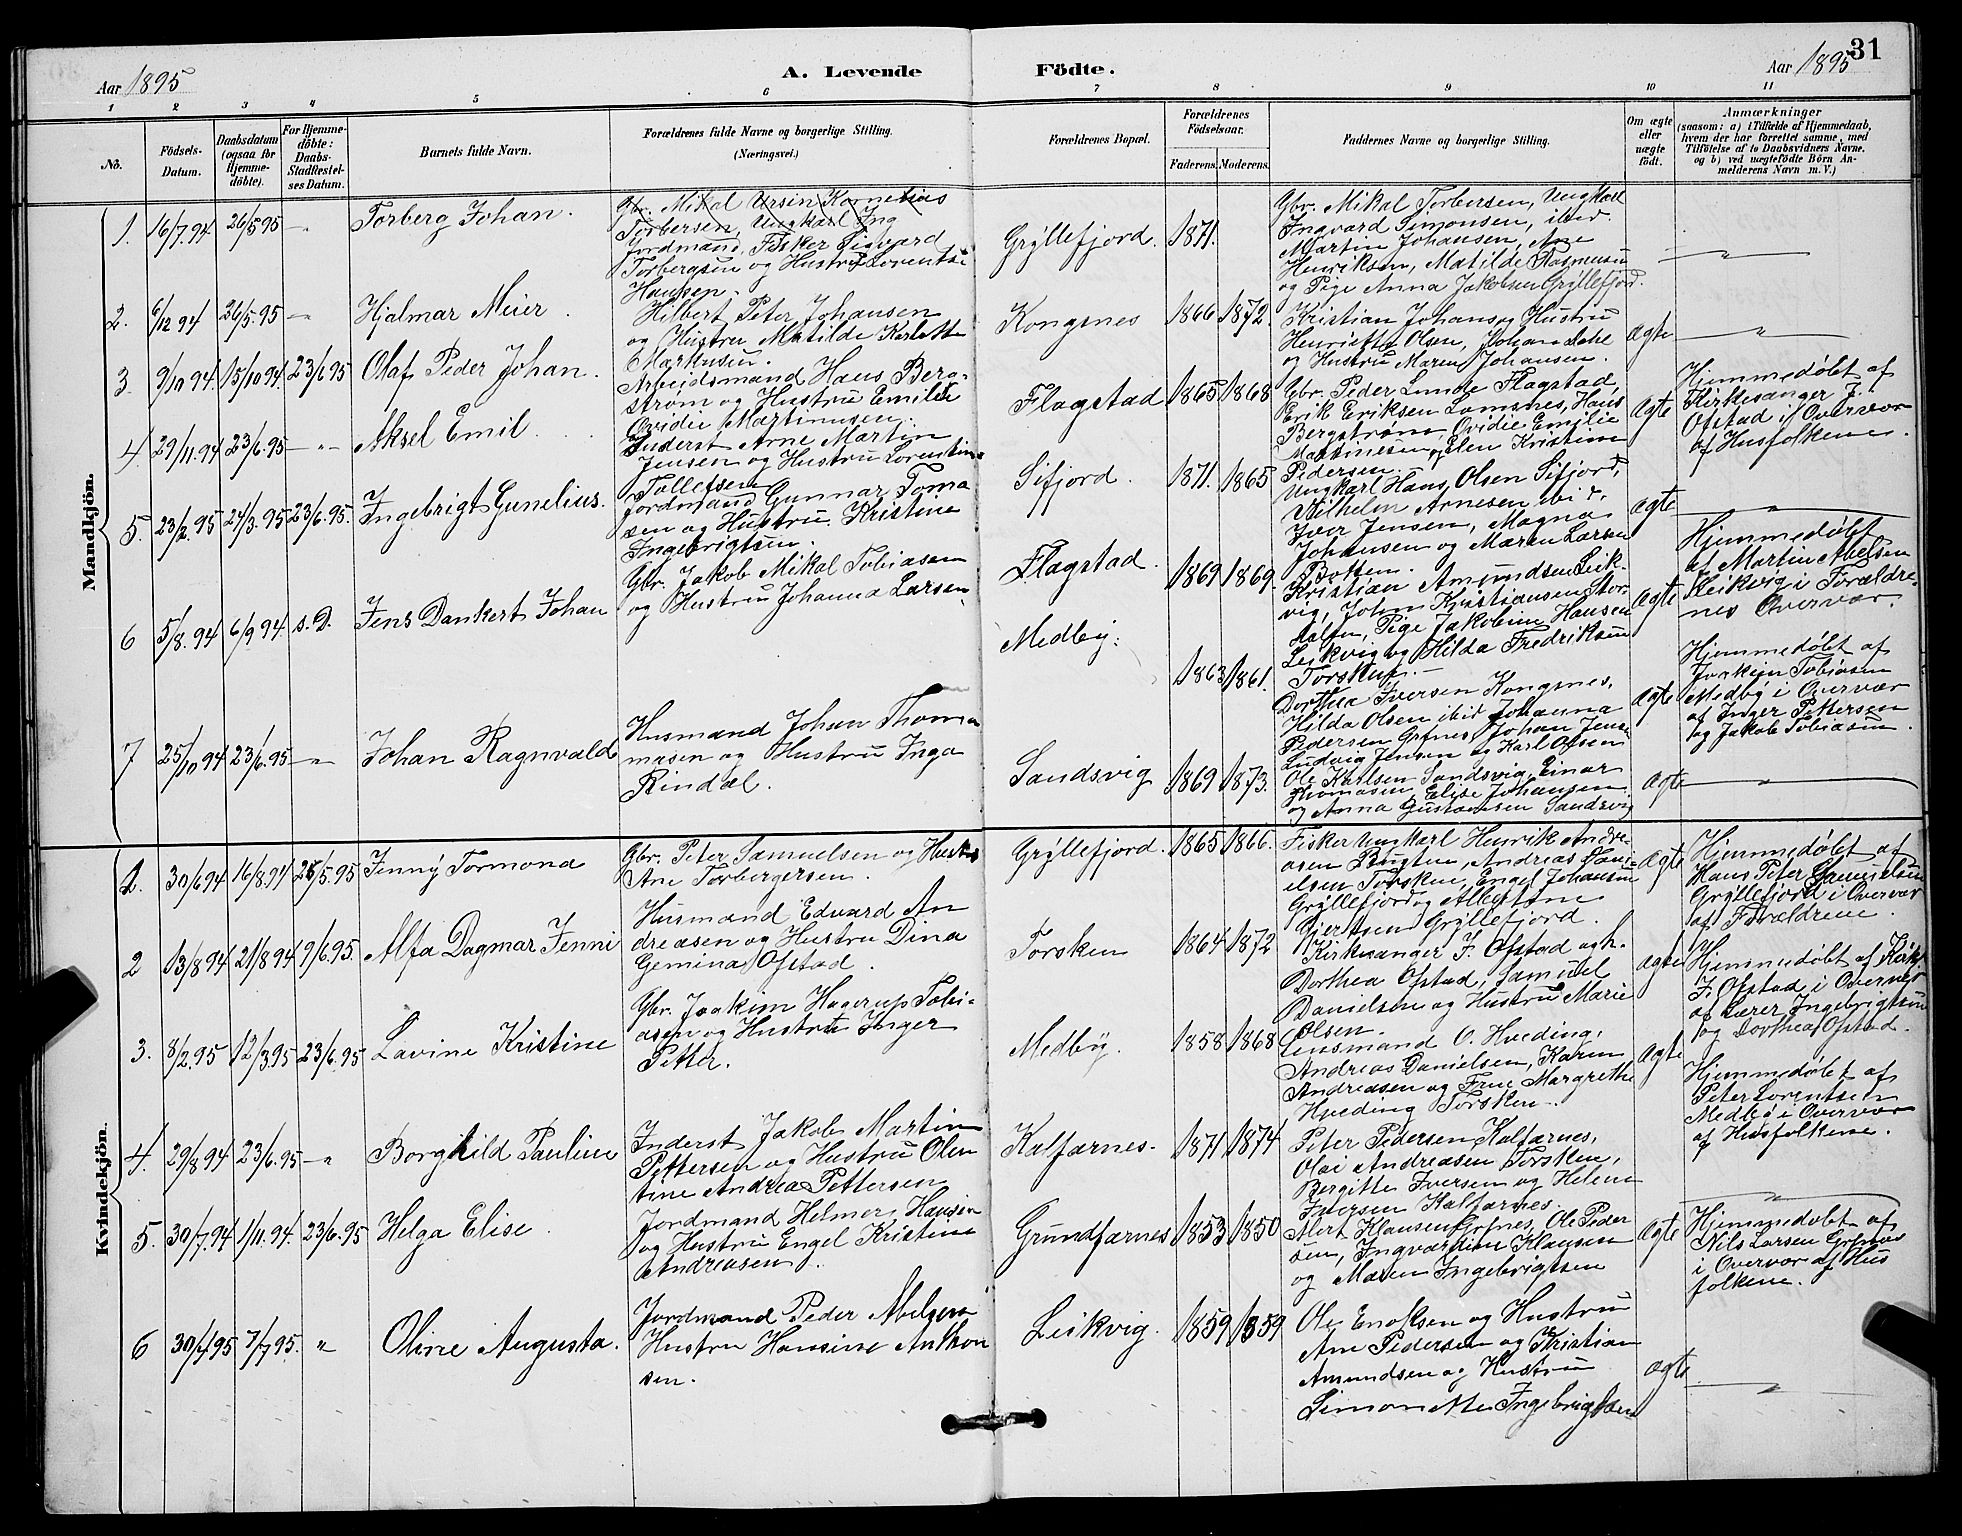 31
Aar 1895
A. Levende Födte.
Aar 1895
1 2 3 4 5 6 7 8 9 10 11
No.
Födsels-
Datum.
Daabsdatum
(ogsaa for
Hjemme-
döbte).
For Hjemme-
döbte:
Daabs-
Stadfæstel-
ses Datum.
Barnets fulde Navn.
Forældrenes fulde Navne og borgerlige Stilling.
(Næringsvei.)
Forældrenes Bopæl.
Forældrenes
Födselsaar.
Faderens. Moderens.
Faddernes Navne og borgerlige Stilling.
Om ægte
eller
uægte
födt.
Anmærkninger
(saasom: a) i Tilfælde af Hjemmedaab,
hvem der har forrettet samme, med
Tilföielse af to Daabsvidners Navne,
og b) ved uægtefödte Börn An-
melderens Navn m. V.)
Mandkjön.
1. 16/7.94 26/5 95 -"- Torberg Johan.
Gbr. Mikal Ursin Kornelius
Torbersen, Ungkarl Ing
Jordmand, Fisker Sigvard
Torbergsen og Hustru Lorentse
Hansen.
Gryllefjord. 1871.
Gbr. Mikal Torbersen, Ungkarl
Ingvard Simonsen, ibid.
Martin Johansen, Ane
Henriksen, Matilde Rasmusen
og Pige Anna Jakobsen Gryllefjord.
2. 6/12 94 26/5.95 -"- Hjalmar Meier.
Hilbert Peter Johansen
og Hustru Matilde Karlotte
Markusen.
Kongsnes 1866 1872.
Kristian Johansen Hustru
Henriette Olsen, Johan Dahl
og Hustru Maren Johansen.
ægte
3 9/10 94. 15/10 94. 23/6 95 Olaf Peder Johan.
Arbeidsmand Hans Berg-
strøm og Hustru Emilie
Ovidie Martinusen.
Flagstad 1865 1868
Gbr. Peder Lunde Flagstad,
Erik Eriksen Lamsnes, Hans
Bergstrøm, Ovidie Emilie
Martinesen og Elen Kristine
Pedersen.
ægte
Hjemmedøbt af
Kirkesanger J.
Ofstad i Overvær
af Husfolkene.
4. 29/11.94 23/6.95 -"- Aksel Emil.
Inderst Arne Martin
Jensen og Hustru Lorentine
Tollefsen
Sifjord. 1871. 1865
Ungkarl Hans Olsen Sifjord,
Vilhelm Arnesen ibid,
Iver Jensen, Magna
Johansen og Maren Larsen
Botten.
ægte
5. 23/2.95 24/3.95 23/6.95. Ingebrigt Gunelius.
Jordmand Gunnar Toma
sen og Hustru Kristine
Ingebrigtsen.
Flagstad. 1869 1869.
Kristian Amundsen Leik-
vig, John Kristiansen Stor-
, Pige Jakobine Hansen
Leikvig og Hilda Fredriksen
Torsken.
ægte
Hjemmedøbt
af Martin Abelsen
Leikvig i Forældre-
nes Overvær.
6 5/8.94 6/9 94. s.D. Jens Dankert Johan
Gbr. Jakob Mikal Tobiasen
og Hustru Johanna Larsen
Medby. 1863 1861.
Dorthea Iversen Kongsnes,
Hilda Olsen ibid Johanna
Pedersen Grfnes, Johan Jens
Ludvig Jensen og Karl Olsen
ægte
Hjemmedøbt af
Joakim Tobiasen
Medby i Overvær
af Inger Pettersen
og Jakob Tobiasen.
7 25/10 94 23/6.95 -"- Johan Ragnvald
Husmand Johan Thoma
masen og Hustru Inga
Rindal.
Sandsvig 1869 1873.
Ole Karlsen Sandsvig, Einar
Thomasen, Elise Johansen
og Anna Gustavsen Sandsvig
ægte
Kvindekjön.
1. 30/6 94 16/8.94 26/5.95 Jenny Tormona
Gbr. Peter Samuelsen og Hustru
Ane Torbergersen.
Gryllefjord. 1865 1866.
Fisker Ungkarl Henrik Andre-
asen Bugten, Andreas Dani-
elsen Torsken, Engel Johansen
Gryllefjord og Albertine
Gjertsen Gryllefjord.
ægte
Hjemmedøbt af
Hans Peter
Gryllefjord i Overvær
af Forældrene.
2 13/8 94 21/8 94 9/6.95. Alfa Dagmar Jenni
Husmand Edvard An
dreasen og Hustru Dina
Gemina Ofstad.
Torsken 1864 1872
Kirkesanger J. Ofstad og h.
Dorthea Ofstad, Samuel
Danielsen og Hustru Marie
Olsen.
ægte
Hjemmedøbt af Kirks.
J. Ofstad i Overvær
af Lærer Ingebrigtsen
og Dorthea Ofstad.
3. 8/2.95 12/3.95 23/6.95 Lavine Kristine
Gbr. Joakim Hagerup Tobi-
asen og Hustru Inger
Petter.
Medby. 1858 1868
Lensmand O. Hveding,
Andreas Danielsen, Karen
Andreasen og Frue Margrethe
Hveding Torsken.
ægte
Hjemmedøbt af
Peter Lorentsen
Medby i Overvær
af Husfolkene.
4. 29/8 94 23/6.95 -"- Borghild Pauline
Inderst Jakob Martin
Pettersen og Hustru Olen
tine Andrea Pettersen
Kalfarnes. 1871 1874
Peter Pedersen Kalfarnes,
Olai Andreasen Torsken,
Bergitte Iversen og Helene
Iversen Kalfarnes.
5. 30/7.94 1/11.94. 23/6.95 Helga Elise.
Jordmand Helmer Hansen
og Hustru Engel Kristine
Andreasen.
Grundfarnes 1853 1850
Mert Klausen Grfnes, Ole Peder
sen, Ingvardine Klausen
og Maren Ingebrigtsen
ægte
Hjemmedøbt af
Nils Larsen Grfnes
i Overvær af Hus
folkene.
6 30/4 95 7/7 95. " Oline Augusta.
Jordmand Peder Abelsen
Hustru Hansine Anthon
sen.
Leikvig. 1859 1859
Ole Enoksen og Hustru
Ane Pedersen og Kristian
Amundsen og Hustru
Simon Ingebrigtsen
ægte